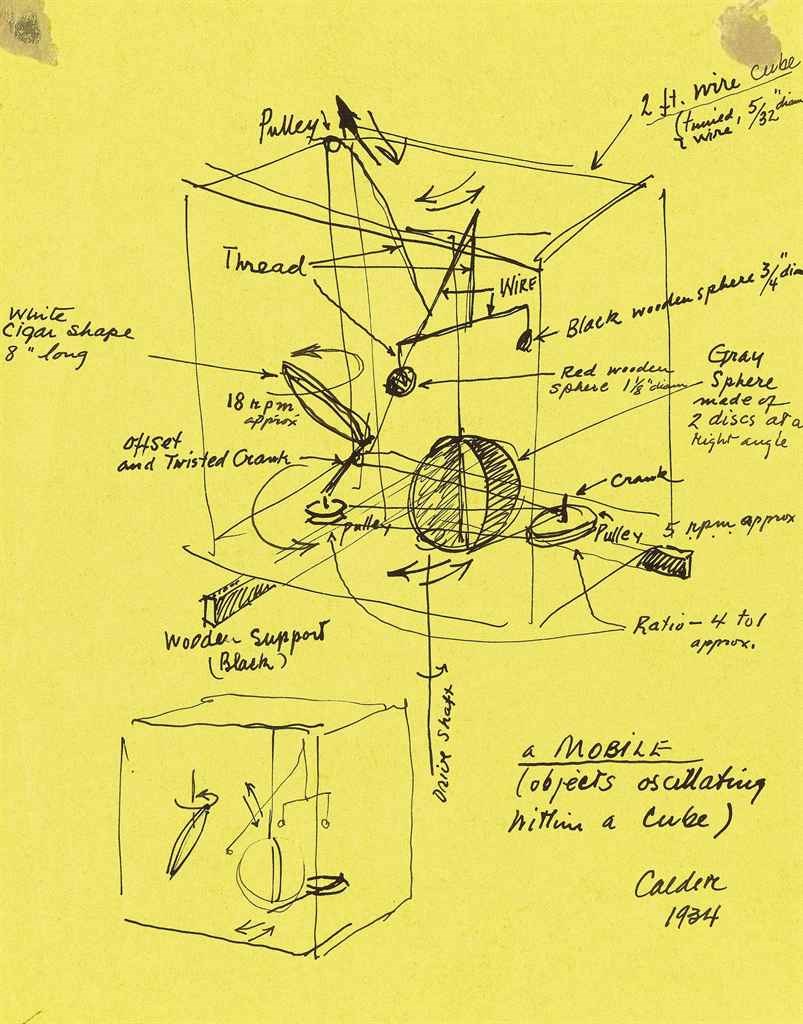 2 ft. wire cube
(tinned, 5/32" diam
wire,
Pulley
Thread
Wire
Black wooden sphere 3/4" diam
White
Cigar shape
8" long
Red wooden
sphere 1 1/8" diam
Gray
Sphere
made of
2 discs at a
right angle
18 rpm
approx
offset
and Twisted Crank
Crank
pulley
Pulley
5 rpm approx
Ratio - 4 to 1
approx.
Wooden support
(Black)
Drive Shaft
a MOBILE
(objects oscillating
within a cube)
Calder
1934